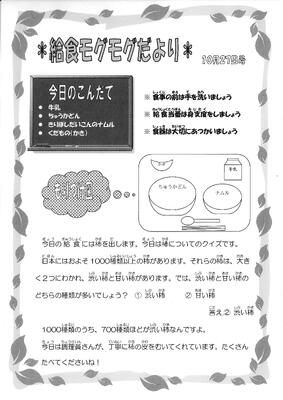 ＊給食モグモグだより＊
10月27日号
今日のこんだて
● 牛乳
● ちゅうかどん
● きりぼしだいこんのナムル
● くだもの(かき)
※ 食事の前は手を洗いましょう
※ 給食当番は身支度をしましょう
※ 食器は大切にあつかいましょう
もりつけ図
牛乳
ちゅうかどん
ナムル
今日の給食には柿を出します。今日は柿についてのクイズです。
日本にはおよそ1000種類以上の柿があります。それらの柿は、大き
く2つにわかれ、渋い柿と甘い柿があります。では、渋い柿と甘い柿の
どちらの種類が多いでしょう？ ① 渋い柿 ② 甘い柿
答え② 渋い柿
1000種類のうち、700種類ほどが渋い柿なんですよ。
今日は調理員さんが、丁寧に柿の皮をむいてくれています。たくさん
たべてくださいね！